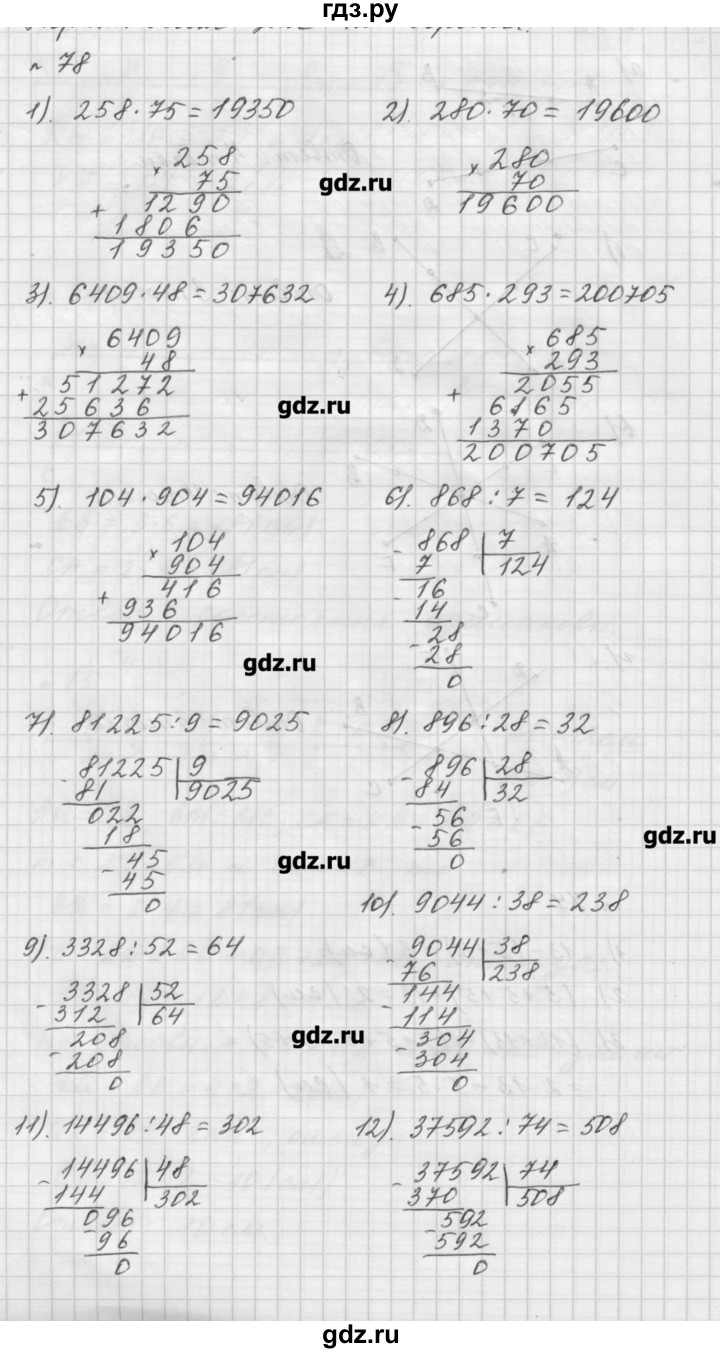 гдз.ру
№ 78
1). 258 · 75 = 19350
258
× 75
1290
+ 1806
19350
2). 280 · 70 = 19600
× 280
70
19600
gdz.ru
3). 6409 · 48 = 307632
6409
× 48
51272
+ 25636
307632
gdz.ru
4). 685 · 293 = 200705
685
× 293
2055
+ 6165
1370
200705
5). 104 · 904 = 94016
× 104
904
416
+ 936
94016
gdz.ru
6). 868 : 7 = 124
- 868 | 7
7 124
- 16
14
- 28
28
0
7). 81225 : 9 = 9025
- 81225 | 9
81 9025
022
18
- 45
45
0
gdz.ru
8). 896 : 28 = 32
- 896 | 28
84 32
- 56
56
0
gdz.ru
9). 3328 : 52 = 64
- 3328 | 52
312 64
- 208
208
0
gdz.ru
10). 9044 : 38 = 238
- 9044 | 38
76 238
- 144
114
- 304
304
0
11). 14496 : 48 = 302
- 14496 | 48
144 302
096
- 96
0
gdz.ru
12). 37592 : 74 = 508
- 37592 | 74
370 508
- 592
592
0
gdz.ru